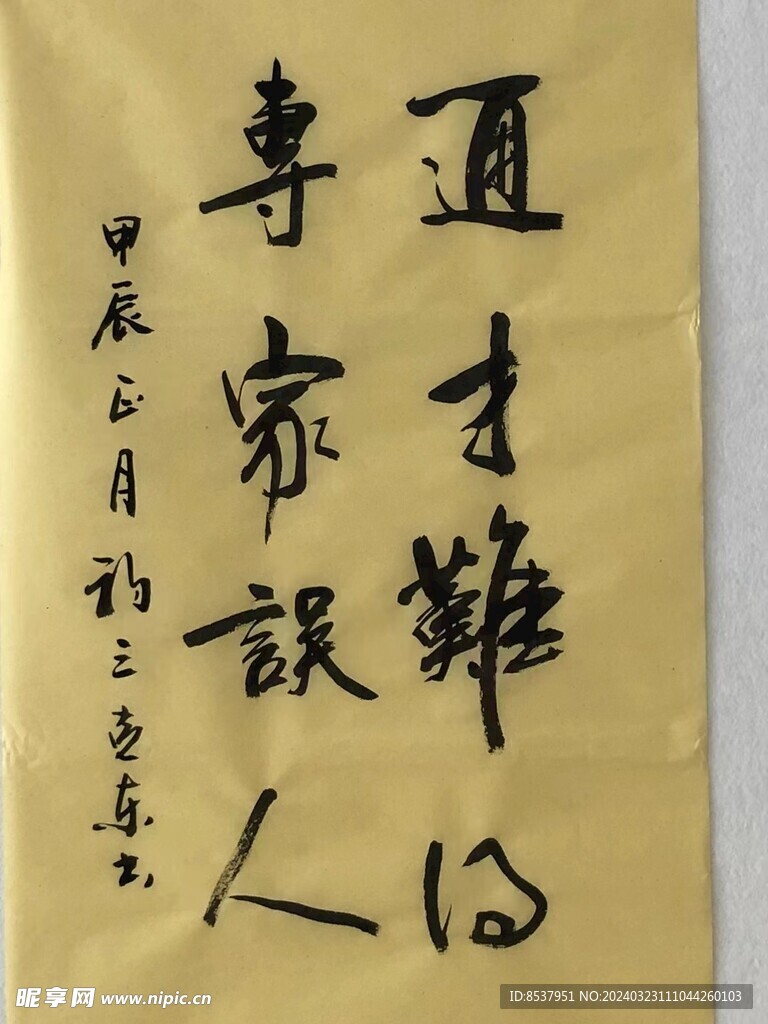 通才難得
專家誤人
甲辰正月初三东书
昵享网 www.nipic.cn
ID:8537951 NO:20240323111044260103